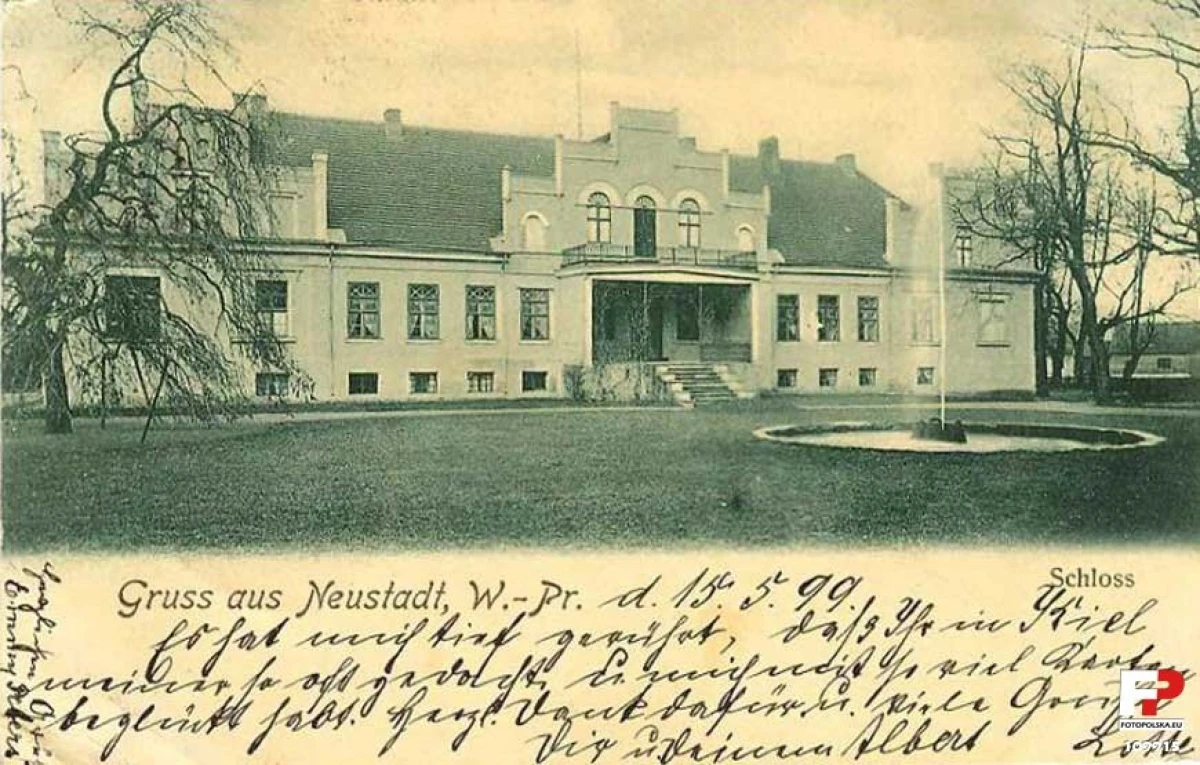 Schloss
Gruss aus Neustadt, W.-Pr. d. 15. 5. 99.
Es hat mich tief gerührt, daß Ihr in Kiel
meiner so oft gedacht u. mich mit so viel Karten
beglückt habt. Herzl. Dank dafür u. viele Grüße
Dir u. Deinem Albert Lotte
Herzlichen Gruß
FOTOPOLSKA.EU